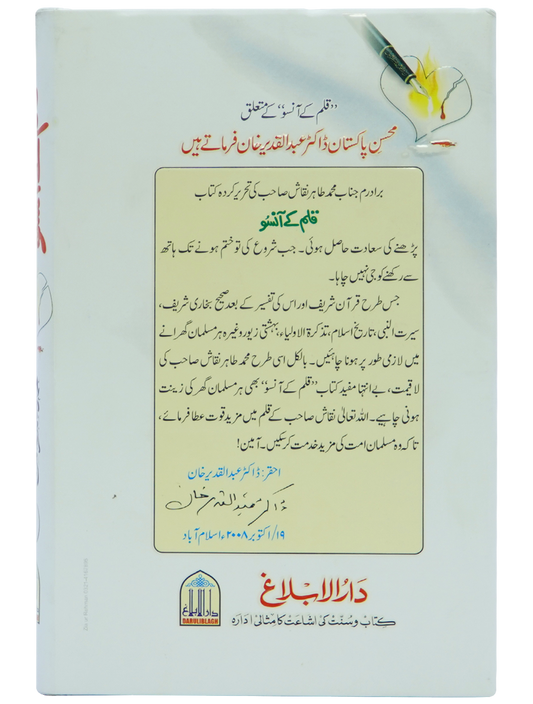 ”قلم کے آنسو“ کے متعلق
محسنِ پاکستان ڈاکٹر عبدالقدیر خان فرماتے ہیں
برادرم جناب محمد طاہر نقاش صاحب کی تحریر کردہ کتاب
قلم کے آنسو
پڑھنے کی سعادت حاصل ہوئی۔ جب شروع کی تو ختم ہونے تک ہاتھ
سے رکھنے کو جی نہیں چاہا۔
جس طرح قرآن شریف اور اس کی تفسیر کے بعد صحیح بخاری شریف،
سیرت النبی، تاریخ اسلام، تذکرۃ الاولیاء، بہشتی زیور وغیرہ ہر مسلمان گھرانے
میں لازمی طور پر ہونا چاہئیں۔ بالکل اسی طرح محمد طاہر نقاش صاحب کی
لاقیمت، بے انتہا مفید کتاب ”قلم کے آنسو“ بھی ہر مسلمان گھر کی زینت
ہونی چاہیے۔ اللہ تعالیٰ نقاش صاحب کے قلم میں مزید قوت عطا فرمائے،
تاکہ وہ مسلمان امت کی مزید خدمت کر سکیں۔ آمین!
احقر: ڈاکٹر عبدالقدیر خان
ڈاکٹر عبدالقدیر خان
۱۹/اکتوبر ۲۰۰۸ء اسلام آباد
دار الابلاغ
کتاب و سنت کی اشاعت کا مثالی ادارہ
دار الابلاغ
DARULIBLAGH